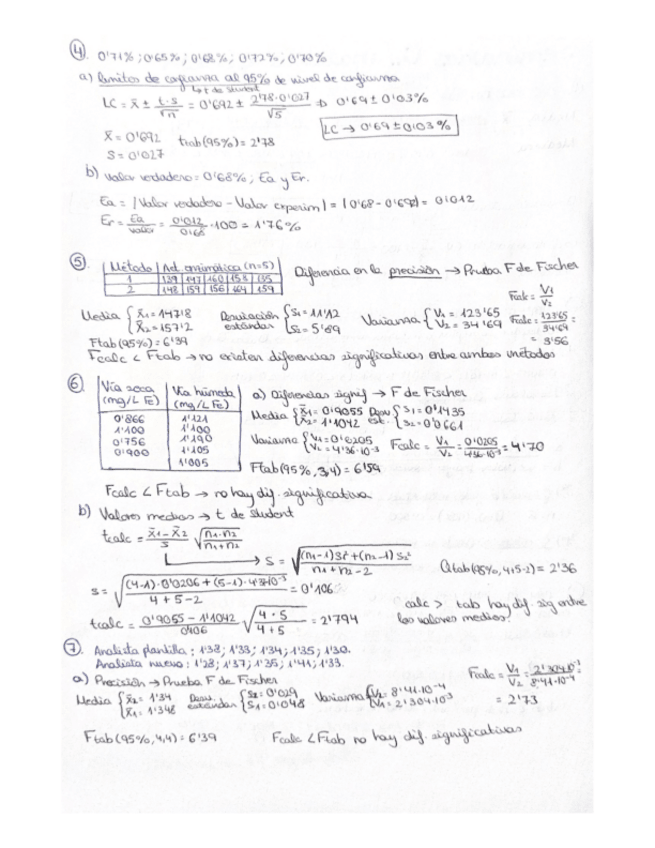 ④. 0'71% ; 0'65% ; 0'68% ; 0'72% ; 0'70%
a) límites de confianza al 95% de nivel de confianza
↳ t de student
LC = x̄ ± t·s/√n = 0'692 ± 2'78·0'027/√5 ⇒ 0'69 ± 0'03%
x̄ = 0'692 ttab(95%) = 2'78
LC → 0'69 ± 0'03%
S = 0'027
b) Valor verdadero = 0'68%; Ea y Er.
Ea = |Valor verdadero − Valor experim| = |0'68 − 0'692| = 0'012
Er = Ea/valor = 0'012/0'68 · 100 = 1'76%
⑤. Método | Act. enzimática (n=5)
1 | 139 | 147 | 160 | 158 | 135
2 | 148 | 159 | 156 | 164 | 159
Diferencia en la precisión → Prueba F de Fischer
Fcalc = V1/V2
Media { x̄1 = 147'8 x̄2 = 157'2 Desviación estándar { S1 = 11'12 S2 = 5'89 Varianza { V1 = 123'65 V2 = 34'69 Fcalc = 123'65/34'69 = = 3'56
Ftab(95%) = 6'39
Fcalc < Ftab → no existen diferencias significativas entre ambos métodos
⑥ Vía seca (mg/L Fe) | Vía húmeda (mg/L Fe)
0'866 | 1'121
1'100 | 1'100
0'756 | 1'190
0'900 | 1'105
1'005
a) Diferencias signif → F de Fischer
Media { x̄1 = 0'9055 x̄2 = 1'1042 Desv est. { S1 = 0'1435 S2 = 0'0661
Varianza { V1 = 0'0205 V2 = 4'36·10⁻³ Fcalc = V1/V2 = 0'0205/4'36·10⁻³ = 4'70
Ftab(95%, 3,4) = 6'59
Fcalc < Ftab → no hay dif. significativa
b) Valores medios → t de student
tcalc = x̄1 − x̄2/s √n1·n2/n1+n2
→ S = √(n1−1)S1² + (n2−1)S2²/n1 + n2 − 2
S = √(4−1)·0'0206 + (5−1)·4'37·10⁻³/4 + 5 − 2 = 0'106
tab(95%, 4+5−2) = 2'36
tcalc = 0'9055 − 1'1042/0'106 √4·5/4+5 = 2'794
calc > tab hay dif. sig entre
los valores medios
⑦. Analista plantilla : 1'38; 1'33; 1'34; 1'35; 1'30.
Analista nuevo : 1'28; 1'37; 1'35; 1'41; 1'33.
a) Precisión → Prueba F de Fischer
Fcalc = V1/V2 = 2'304·10⁻³/8'41·10⁻⁴ = = 2'73
Media { x̄2 = 1'34 x̄1 = 1'348 Desv. estándar { S2 = 0'029 S1 = 0'048 Varianza { V2 = 8'41·10⁻⁴ V1 = 2'304·10⁻³
Ftab(95%, 4,4) = 6'39 Fcalc < Ftab no hay dif. significativas